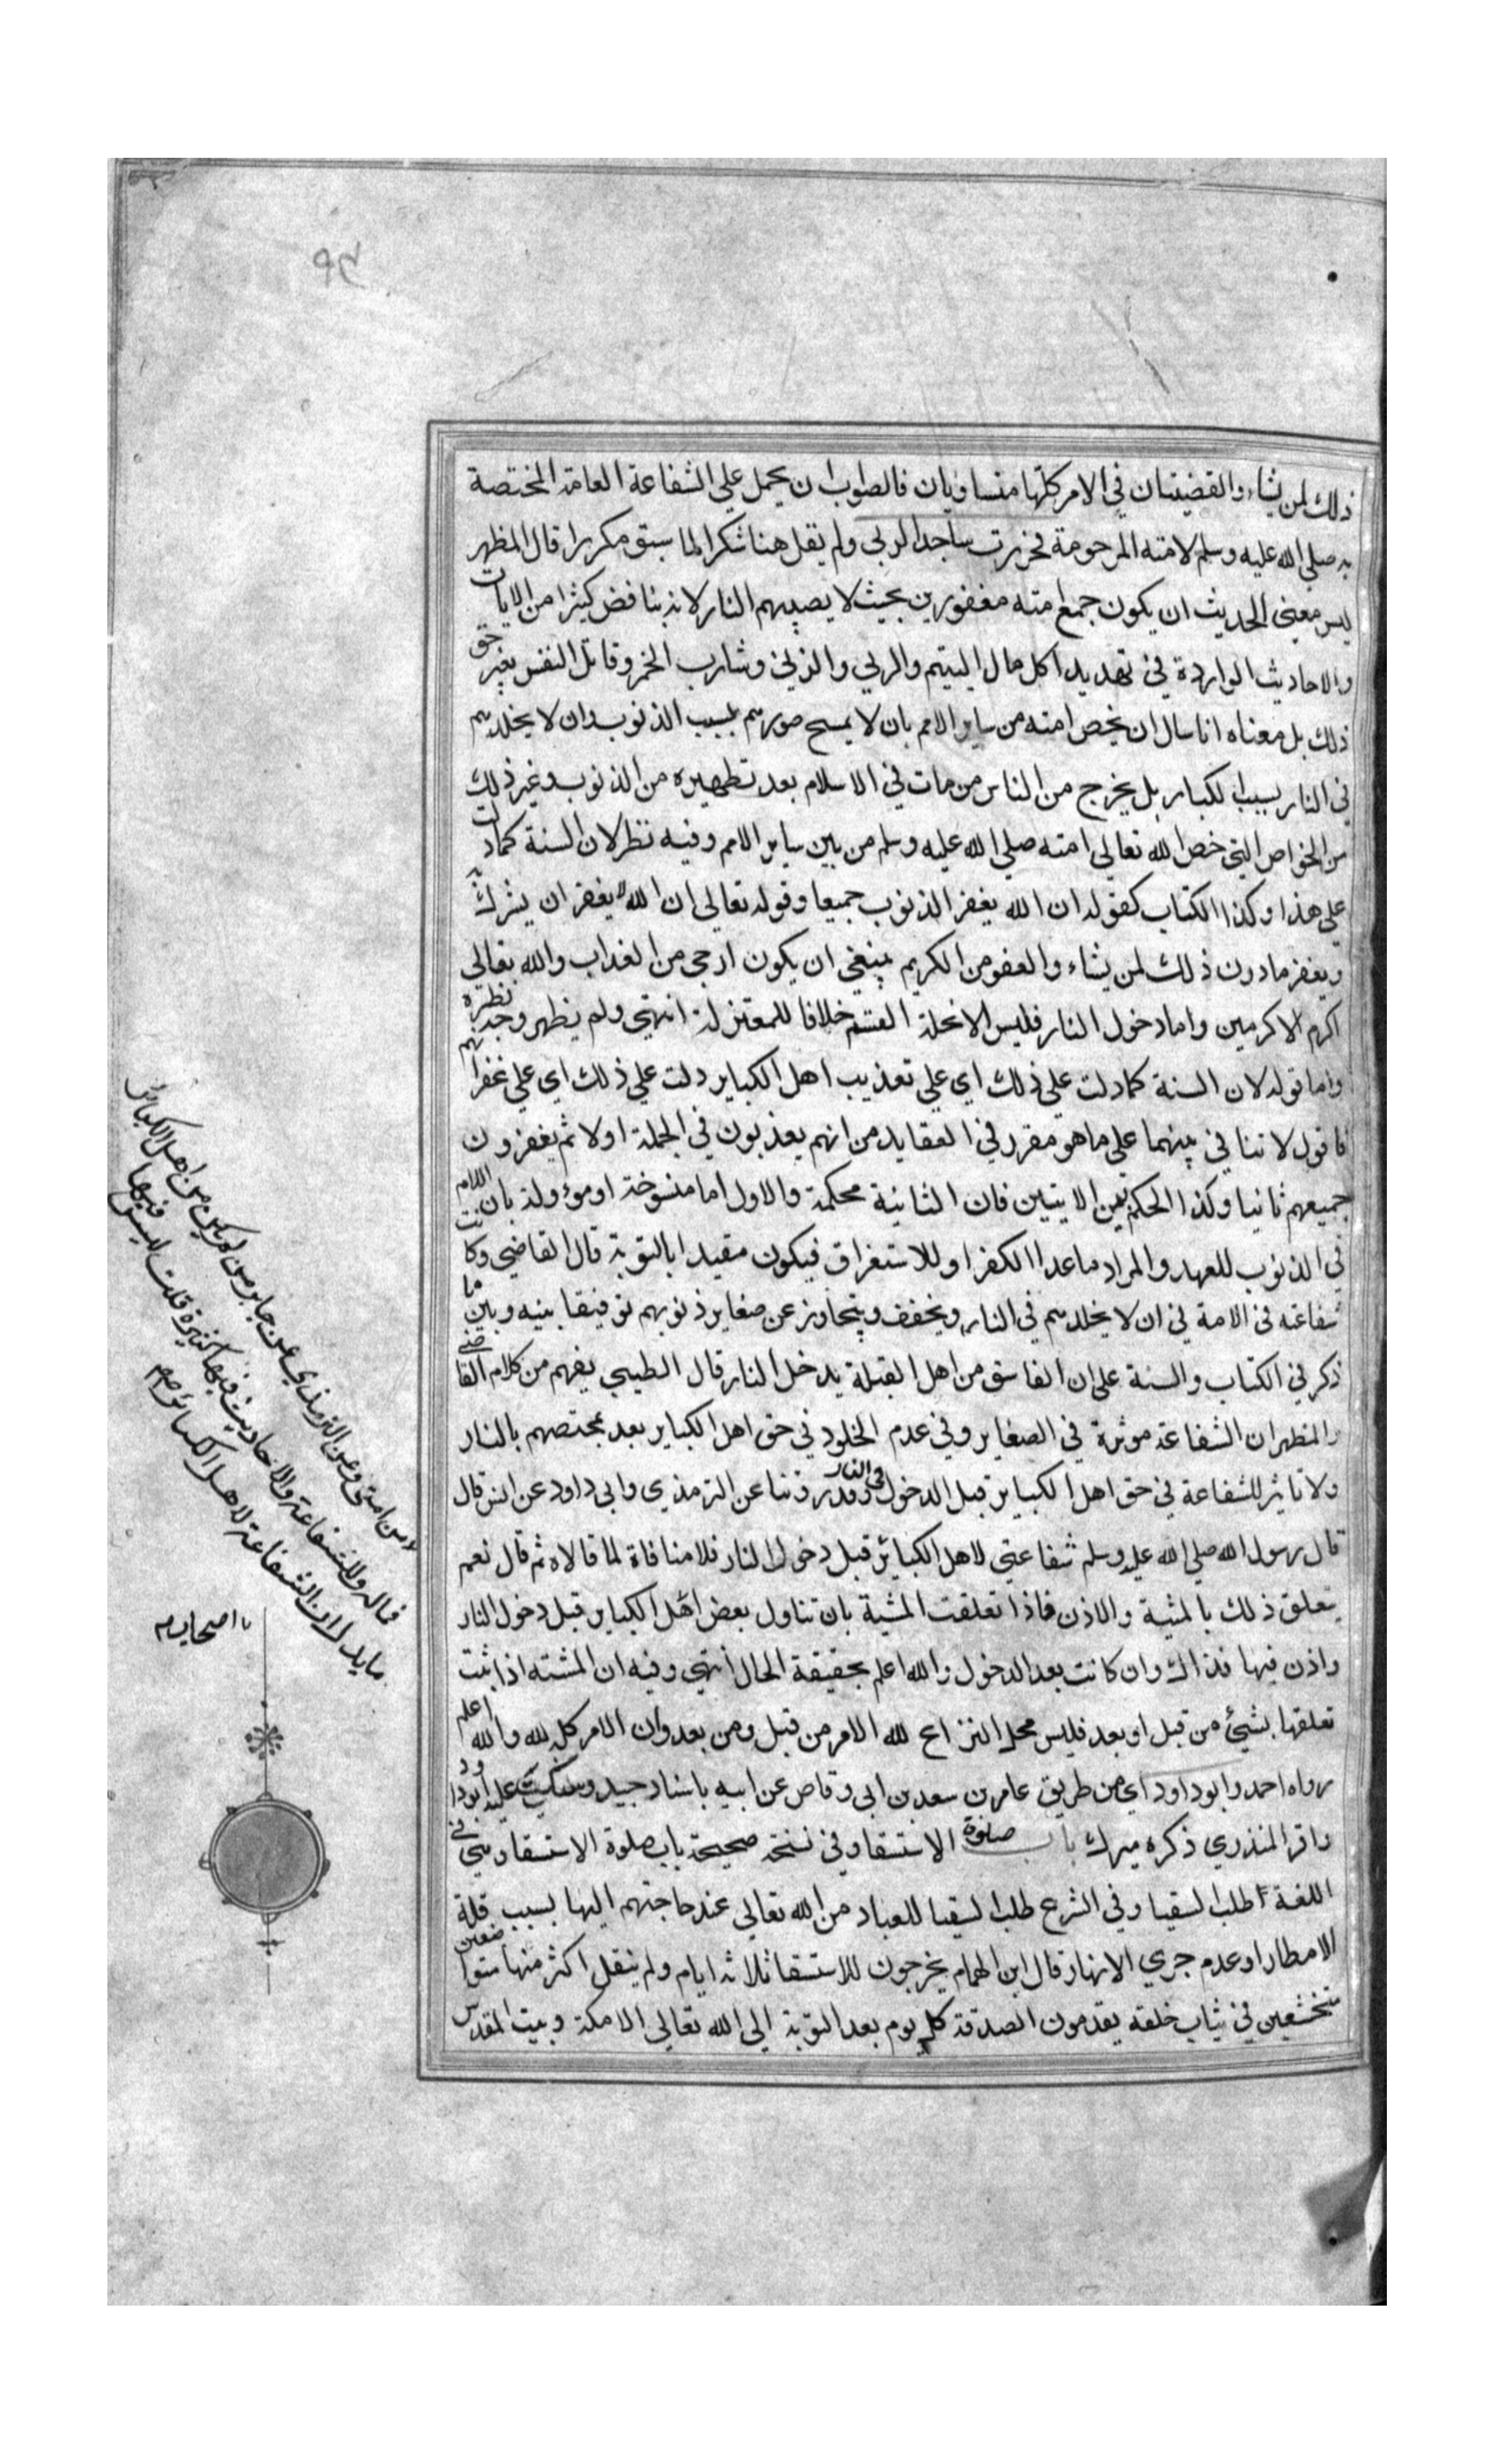 ذلك لمن يشاء والقضيتان في الامر كلها متساويان فالصواب ان يحمل علي الشفاعة العامة المختصة
به صلي الله عليه وسلم لامته المرحومة فخررت ساجدا لربي ولم يقل هنا شكرا لما سبق مكررا قال المظهر
ليس معني الحديث ان يكون جميع امته مغفورين بحيث لا يصيبهم النار لانه يناقض كثيرا من الايات
والاحاديث الواردة في تهديد اكل مال اليتيم والربي والزني وشارب الخمر وقاتل النفس بغير حق
ذلك بل معناه انا سال ان يخص امته من ساير الامم بان لا يمسح صورهم بسبب الذنوب وان لا يخلدهم
في النار بسبب الكباير بل يخرج من الناس من مات في الاسلام بعد تطهيره من الذنوب وغير ذلك
من الخواص التي خص الله تعالي امته صلي الله عليه وسلم من بين ساير الامم وفيه نظر لان السنة كما دلت
علي هذا وكذا الكتاب كقوله ان الله يغفر الذنوب جميعا وقوله تعالي ان الله لا يغفر ان يشرك به
ويغفر ما دون ذلك لمن يشاء والعفو من الكريم ينبغي ان يكون ارجي من العذاب والله تعالي
اكرم الاكرمين واما دخول النار فليس الا تحلة القسم خلافا للمعتزلة انتهي ولم يظهر وجه نظره
واما قوله لان السنة كما دلت علي ذلك اي علي تعذيب اهل الكباير دلت علي ذلك اي علي غفرانهم
فاقول لا تنافي بينهما علي ما هو مقرر في العقايد من انهم يعذبون في الجملة اولا ثم يغفرون
جميعهم ثانيا وكذا الحكم بين الايتين فان الثانية محكمة والاول اما منسوخة او موءولة بان اللام
في الذنوب للعهد والمراد ما عدا الكفر او للاستغراق فيكون مقيدا بالتوبة قال القاضي وكانت
شفاعته في الامة في ان لا يخلدهم في النار ويخفف ويتجاوز عن صغاير ذنوبهم توفيقا بينه وبين ما
ذكر في الكتاب والسنة علي ان الفاسق من اهل القبلة يدخل النار قال الطيبي يفهم من كلام القاضي
والمظهر ان الشفاعة موثرة في الصغاير وفي عدم الخلود في حق اهل الكباير بعد تمحيصهم بالنار
ولا تاثير للشفاعة في حق اهل الكباير قبل الدخول في النار وقد روينا عن الترمذي وابي داود عن انس قال
قال رسول الله صلي الله عليه وسلم شفاعتي لاهل الكبائر قبل دخول النار فلا منافاة لما قالاه ثم قال نعم
يتعلق ذلك بالمشية والاذن فاذا تعلقت المشية بان تناول بعض اهل الكباير قبل دخول النار
واذن فيها فذاك وان كانت بعد الدخول والله اعلم بحقيقة الحال انتهي وفيه ان المشته اذا ثبت
تعلقها بشيئ من قبل او بعد فليس محل النزاع لله الامر من قبل ومن بعد وان الامر كله لله والله اعلم
رواه احمد وابو داود اي من طريق عامر بن سعد بن ابي وقاص عن ابيه باسناد جيد وسكت عليه ابو داود
واقر المنذري ذكره ميرك باب صلوة الاستسقا وفي نسخة صحيحة باب صلوة الاستسقا وهي في
اللغة طلب السقيا وفي الشرع طلب السقيا للعباد من الله تعالي عند حاجتهم اليها بسبب قلة
الامطار او عدم جري الانهار قال ابن الهمام يخرجون للاستسقا ثلاثة ايام ولم ينقل اكثر منها متواضعين
متخشعين في ثياب خلقة يقدمون الصدقة كل يوم بعد التوبة الي الله تعالي الا مكة وبيت المقدس
لا من امتي وعن الترمذي عن جابر من لم يكن من اهل الكبائر
فماله وللشفاعة والاحاديث فيها كثيرة قلت ليس فيها
ما يدل ان الشفاعة لاهل الكبائر